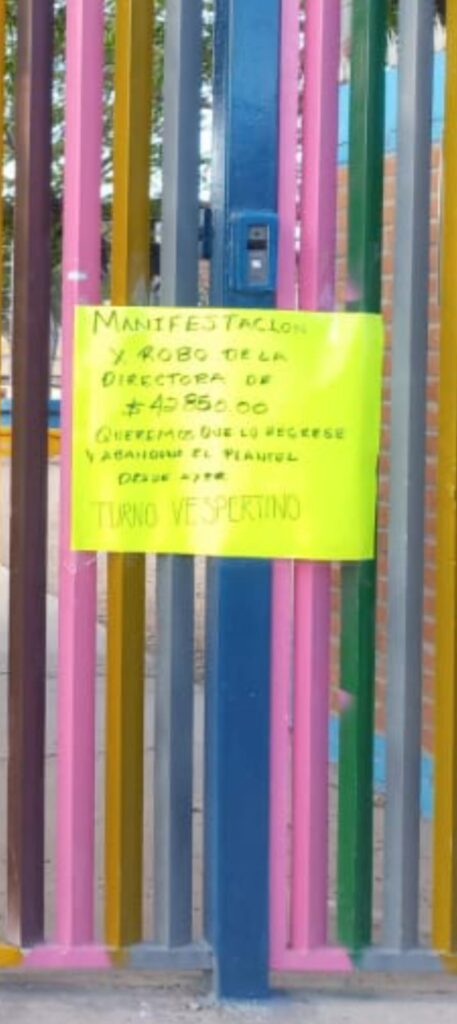 MANIFESTACION
X ROBO DE LA
DIRECTORA DE
$42850.00
QUEREMOS QUE LO REGRESE
Y ABANDONE EL PLANTEL
DESDE AYER
TURNO VESPERTINO